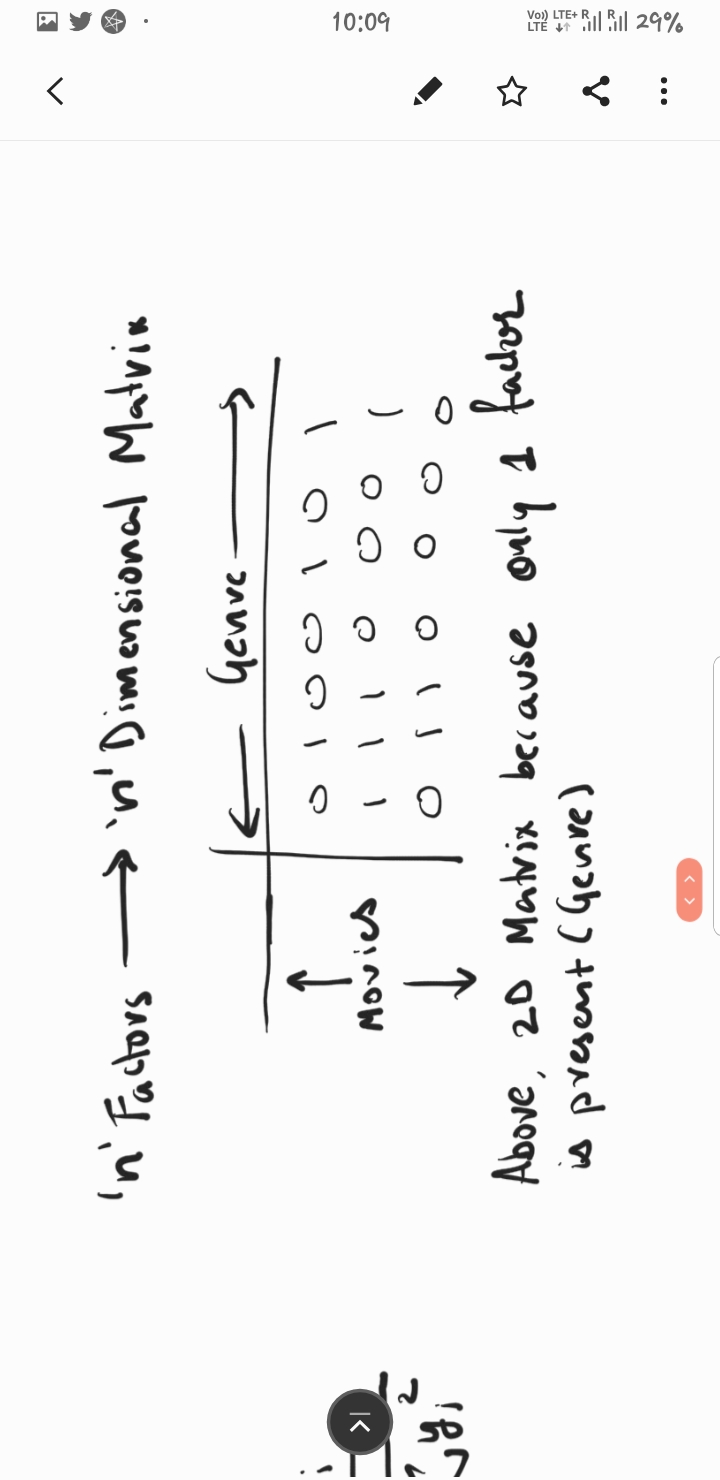 10:09 Vo)) LTE LTE+ R R 29%
'n' Factors → 'n' Dimensional Matrix
← Genre →
0 1 0 0 1 0 1
← Movies →
1 1 1 0 0 0 1
0 1 1 0 0 0 0
Above, 2D Matrix because only 1 factor
is present (Genre)